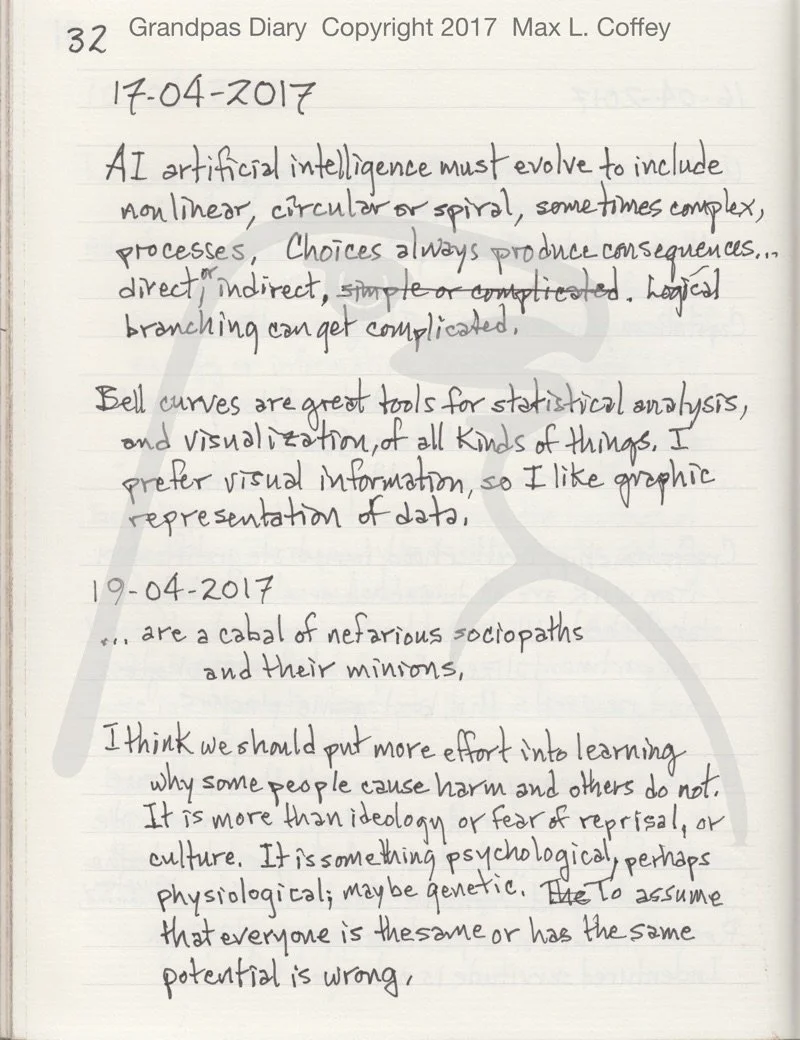 32 Grandpas Diary Copyright 2017 Max L. Coffey
17-04-2017
AI artificial intelligence must evolve to include
nonlinear, circular or spiral, sometimes complex,
processes, Choices always produce consequences...
direct, or indirect, simple or complicated. Logical
branching can get complicated.
Bell curves are great tools for statistical analysis,
and visualization, of all kinds of things. I
prefer visual information, so I like graphic
representation of data.
19-04-2017
... are a cabal of nefarious sociopaths
and their minions.
I think we should put more effort into learning
why some people cause harm and others do not.
It is more than ideology or fear of reprisal, or
culture. It is something psychological, perhaps
physiological; maybe genetic. The To assume
that everyone is the same or has the same
potential is wrong.